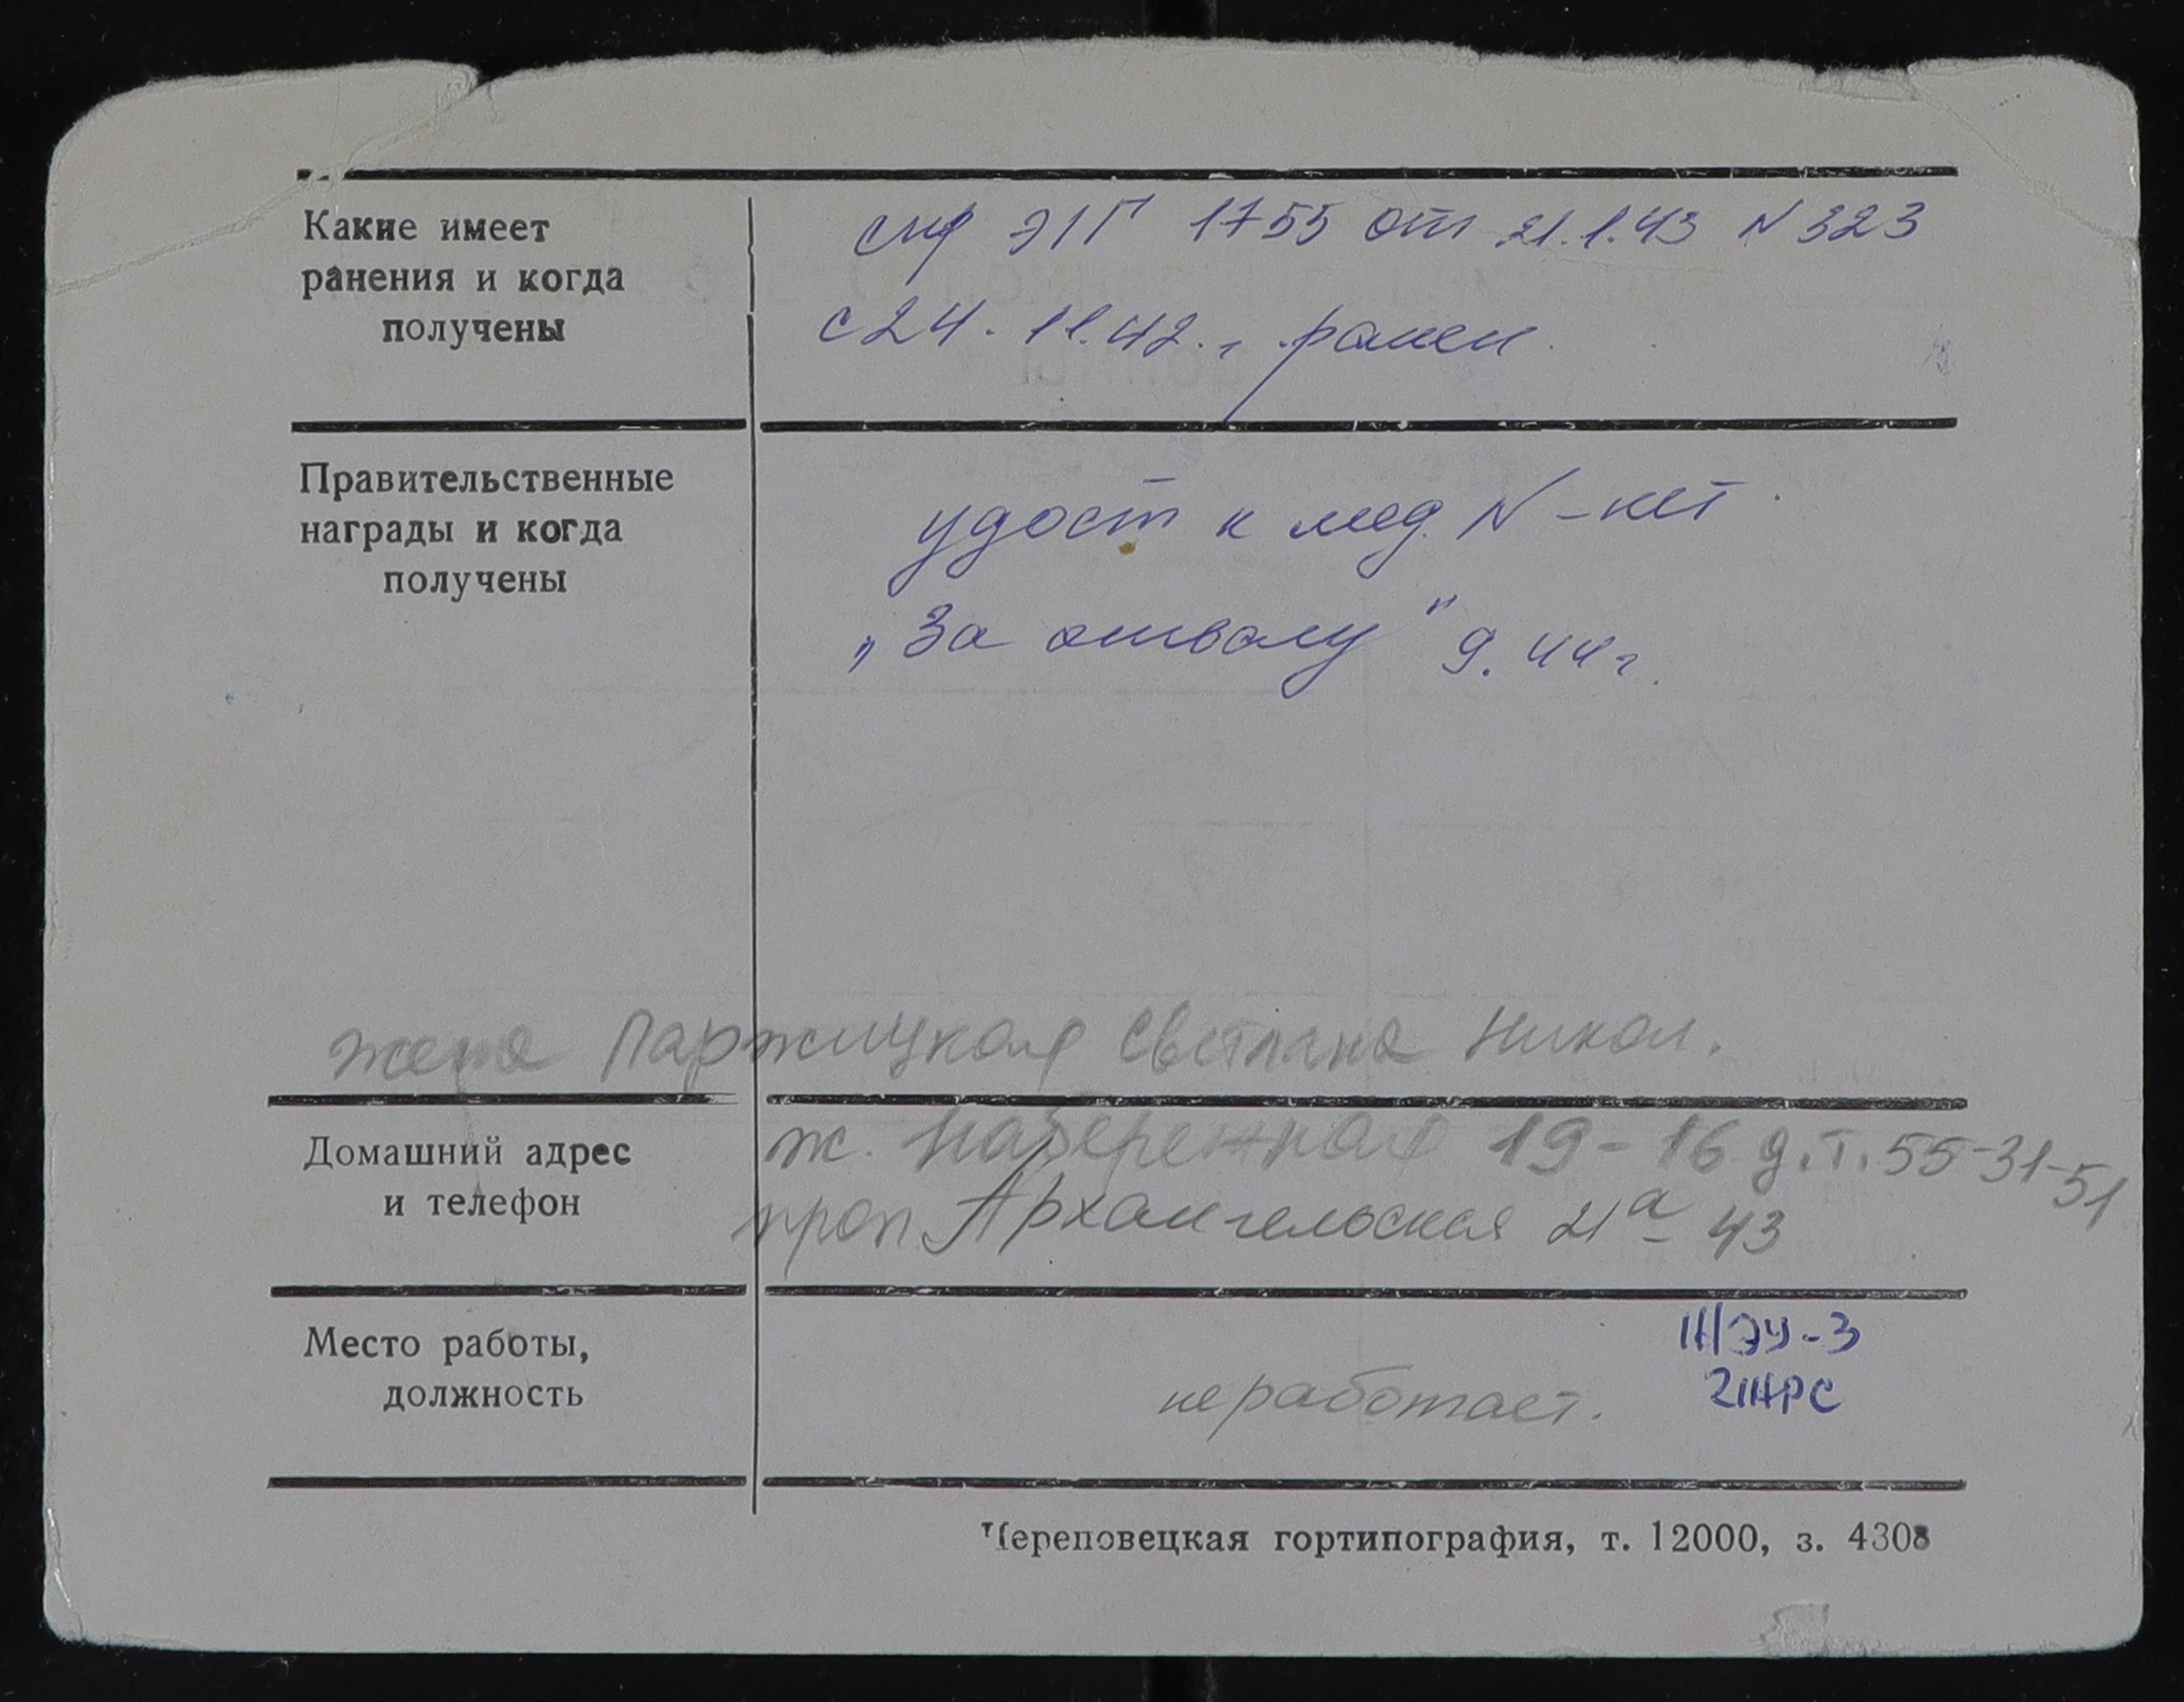 Какие имеет
ранения и когда
получены
спр ЭГ 1755 от 21.1.43 N 323
с 24.11.42 г. ранен.
Правительственные
награды и когда
получены
удост к мед. N - нет.
„За отвагу" 9.44 г.
жена Паржицкая Светлана Никол.
Домашний адрес
и телефон
ж. Набережная 19-16 д.т. 55-31-51
проп. Архангельская 21а - 43
Место работы,
должность
не работает.
ЖЭУ-3
Череповецкая гортипография, т. 12000, з. 4308